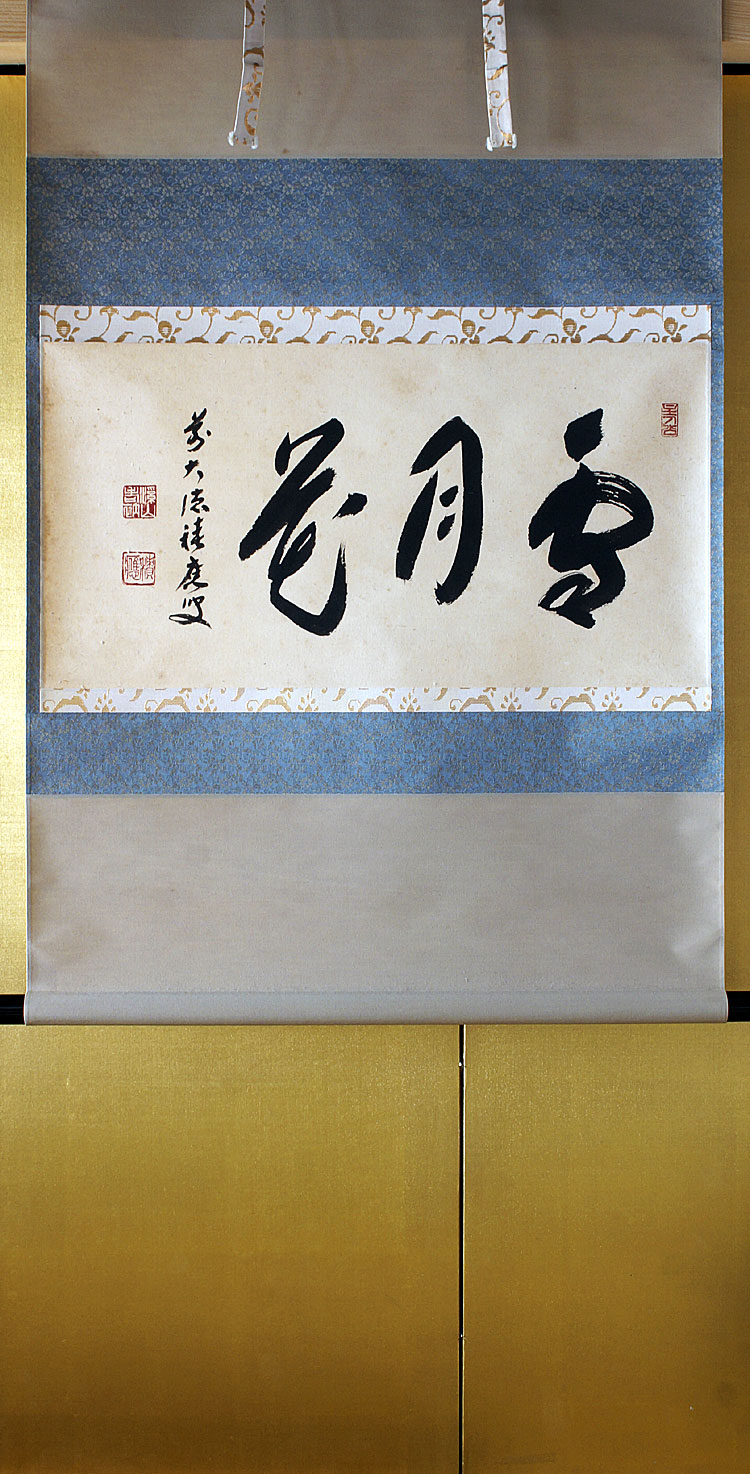 雪月花
前大徳積應叟